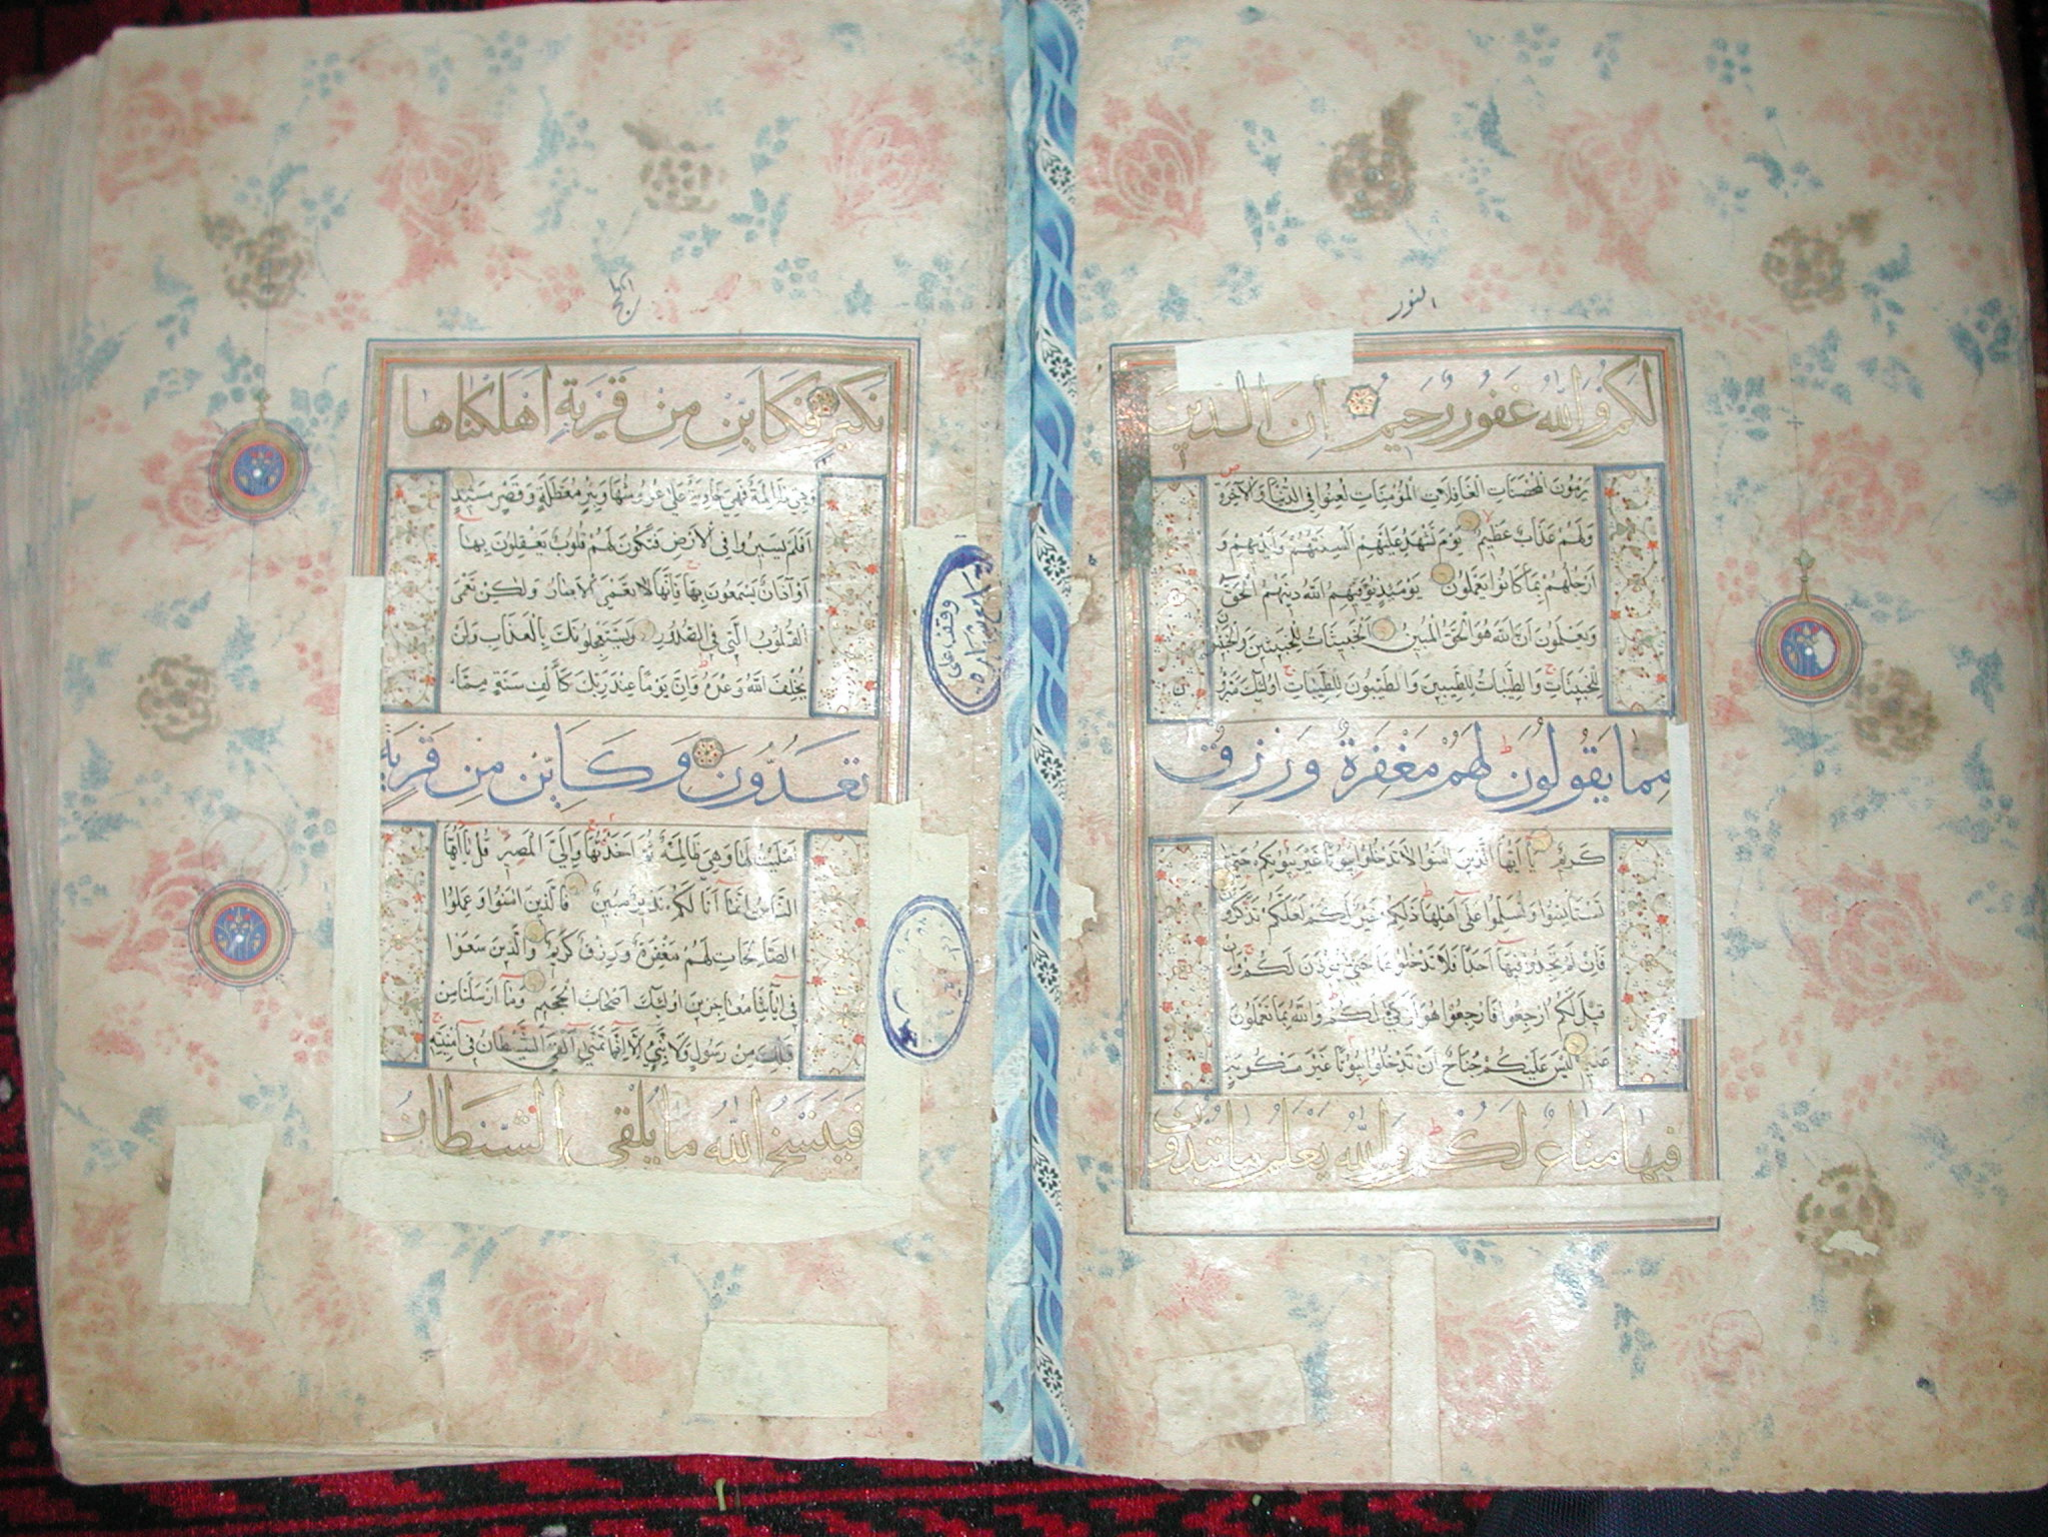 النور
لَكُمْ وَاللهُ غَفُورٌ رَحِيمٌ إِنَّ الَّذِينَ
يَرْمُونَ الْمُحْصَنَاتِ الْغَافِلَاتِ الْمُؤْمِنَاتِ لُعِنُوا فِي الدُّنْيَا وَالْآخِرَةِ
وَلَهُمْ عَذَابٌ عَظِيمٌ يَوْمَ تَشْهَدُ عَلَيْهِمْ أَلْسِنَتُهُمْ وَأَيْدِيهِمْ وَ
أَرْجُلُهُمْ بِمَا كَانُوا يَعْمَلُونَ يَوْمَئِذٍ يُوَفِّيهِمُ اللهُ دِينَهُمُ الْحَقَّ
وَيَعْلَمُونَ أَنَّ اللهَ هُوَ الْحَقُّ الْمُبِينُ الْخَبِيثَاتُ لِلْخَبِيثِينَ وَالْخَبِيثُونَ
لِلْخَبِيثَاتِ وَالطَّيِّبَاتُ لِلطَّيِّبِينَ وَالطَّيِّبُونَ لِلطَّيِّبَاتِ أُولَئِكَ مُبَرَّؤُنَ
مِمَّا يَقُولُونَ لَهُمْ مَغْفِرَةٌ وَرِزْقٌ
كَرِيمٌ يَا أَيُّهَا الَّذِينَ آمَنُوا لَا تَدْخُلُوا بُيُوتًا غَيْرَ بُيُوتِكُمْ حَتَّى
تَسْتَأْنِسُوا وَتُسَلِّمُوا عَلَى أَهْلِهَا ذَلِكُمْ خَيْرٌ لَكُمْ لَعَلَّكُمْ تَذَكَّرُونَ
فَإِنْ لَمْ تَجِدُوا فِيهَا أَحَدًا فَلَا تَدْخُلُوهَا حَتَّى يُؤْذَنَ لَكُمْ وَإِنْ
قِيلَ لَكُمُ ارْجِعُوا فَارْجِعُوا هُوَ أَزْكَى لَكُمْ وَاللهُ بِمَا تَعْمَلُونَ
عَلِيمٌ لَيْسَ عَلَيْكُمْ جُنَاحٌ أَنْ تَدْخُلُوا بُيُوتًا غَيْرَ مَسْكُونَةٍ
فِيهَا مَتَاعٌ لَكُمْ وَاللهُ يَعْلَمُ مَا تُبْدُونَ
الحج
نَكِيرِ فَكَأَيِّنْ مِنْ قَرْيَةٍ أَهْلَكْنَاهَا
وَهِيَ ظَالِمَةٌ فَهِيَ خَاوِيَةٌ عَلَى عُرُوشِهَا وَبِئْرٍ مُعَطَّلَةٍ وَقَصْرٍ مَشِيدٍ
أَفَلَمْ يَسِيرُوا فِي الْأَرْضِ فَتَكُونَ لَهُمْ قُلُوبٌ يَعْقِلُونَ بِهَا
أَوْ آذَانٌ يَسْمَعُونَ بِهَا فَإِنَّهَا لَا تَعْمَى الْأَبْصَارُ وَلَكِنْ تَعْمَى
الْقُلُوبُ الَّتِي فِي الصُّدُورِ وَيَسْتَعْجِلُونَكَ بِالْعَذَابِ وَلَنْ
يُخْلِفَ اللهُ وَعْدَهُ وَإِنَّ يَوْمًا عِنْدَ رَبِّكَ كَأَلْفِ سَنَةٍ مِمَّا
تَعُدُّونَ وَكَأَيِّنْ مِنْ قَرْيَةٍ
أَمْلَيْتُ لَهَا وَهِيَ ظَالِمَةٌ ثُمَّ أَخَذْتُهَا وَإِلَيَّ الْمَصِيرُ قُلْ يَا أَيُّهَا
النَّاسُ إِنَّمَا أَنَا لَكُمْ نَذِيرٌ مُبِينٌ فَالَّذِينَ آمَنُوا وَعَمِلُوا
الصَّالِحَاتِ لَهُمْ مَغْفِرَةٌ وَرِزْقٌ كَرِيمٌ وَالَّذِينَ سَعَوْا
فِي آيَاتِنَا مُعَاجِزِينَ أُولَئِكَ أَصْحَابُ الْجَحِيمِ وَمَا أَرْسَلْنَا مِنْ
قَبْلِكَ مِنْ رَسُولٍ وَلَا نَبِيٍّ إِلَّا إِذَا تَمَنَّى أَلْقَى الشَّيْطَانُ فِي أُمْنِيَّتِهِ
فَيَنْسَخُ اللهُ مَا يُلْقِي الشَّيْطَانُ
وقف على